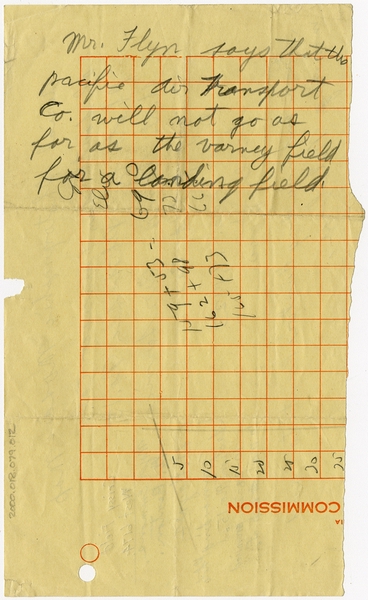 Mr. Flyn says that the
pacific air Transport
Co. will not go as
far as the varney field
for a landing field.
159 + 53 =
162 + 48
165 + 73
5 10 15 20 25
COMMISSION
1A
2000.018.079.012